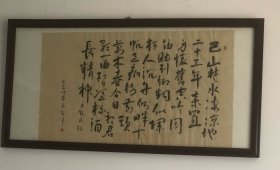 巴山楚水凄涼地
二十三年棄置
身懷舊空吟聞
笛賦到鄉翻似爛
柯人沉舟側畔千
帆過病樹前頭
萬木春今日聽君
歌一曲暫憑杯酒
長精神